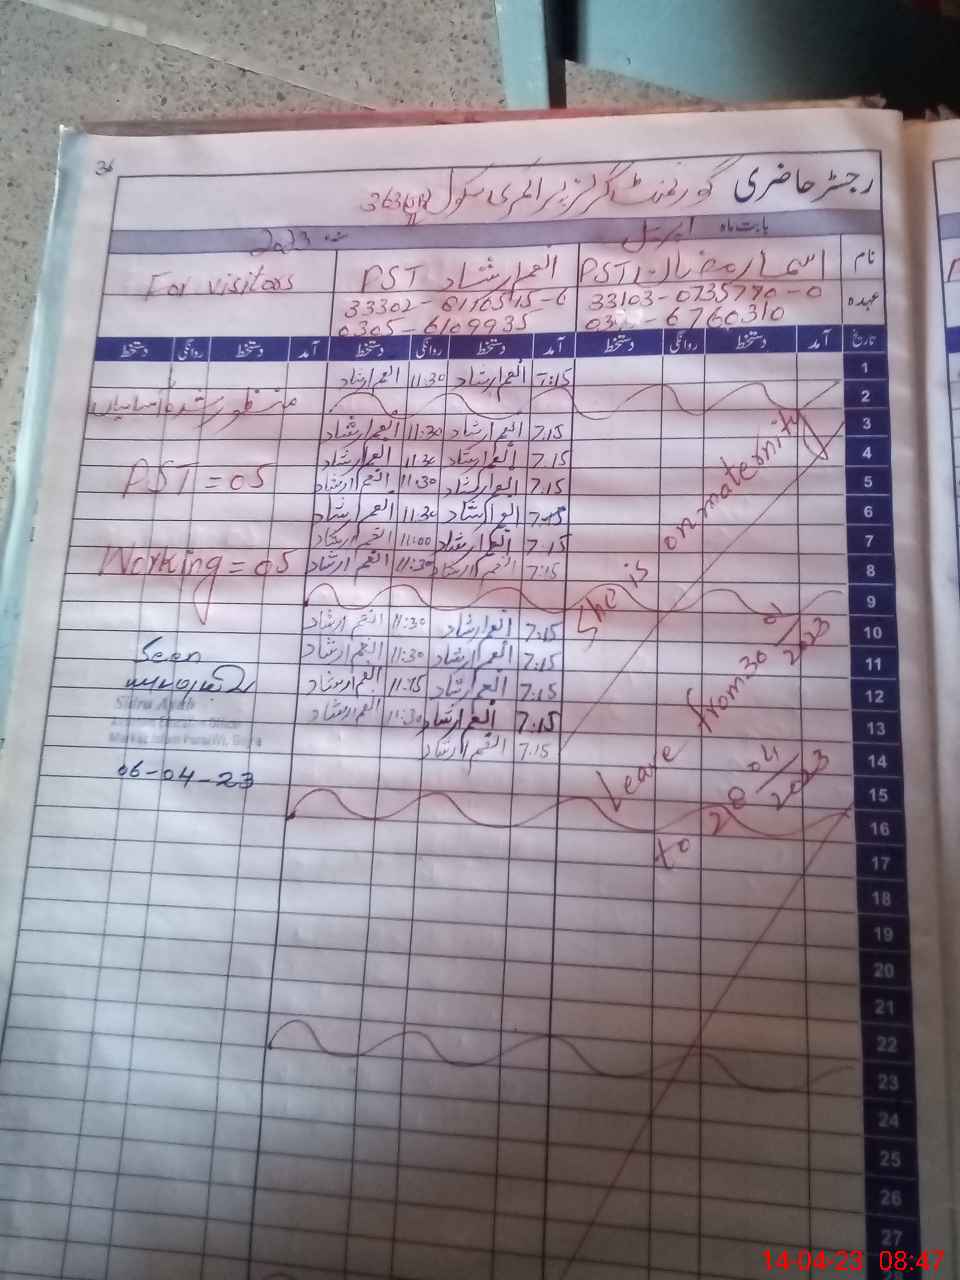 36
رجسٹر حاضری گورنمنٹ گرلز پرائمری سکول
بابت ماہ اپریل سنہ 2023
نام اسماء رمضان PST انعم ارشاد PST For visitors
عہدہ 33103-0735790-0 33302-6176515-6
6760310 0305-6109935
تاریخ آمد دستخط روانگی دستخط آمد دستخط روانگی دستخط آمد دستخط روانگی دستخط
1 7:15 انعم ارشاد 11:30 انعم ارشاد
2 منظور شدہ اسامیاں
3 7:15 انعم ارشاد 11:30 انعم ارشاد
4 7:15 انعم ارشاد 11:30 انعم ارشاد
5 7:15 انعم ارشاد 11:30 انعم ارشاد PST = 05
6 7:15 انعم ارشاد 11:30 انعم ارشاد
7 7:15 انعم ارشاد 11:00 انعم ارشاد
8 7:15 انعم ارشاد 11:30 انعم ارشاد Working = 05
9
10 7:15 انعم ارشاد 11:30 انعم ارشاد
11 7:15 انعم ارشاد 11:30 انعم ارشاد Seen
12 7:15 انعم ارشاد 11:15 انعم ارشاد
13 7:15 انعم ارشاد 11:30 انعم ارشاد
14 7:15 انعم ارشاد
06-04-23
15
16
17
18
19
20
21
22
23
24
25
26
27
She is on maternity
Leave from 30 2023
to 28 04 2023
14-04-23 08:47